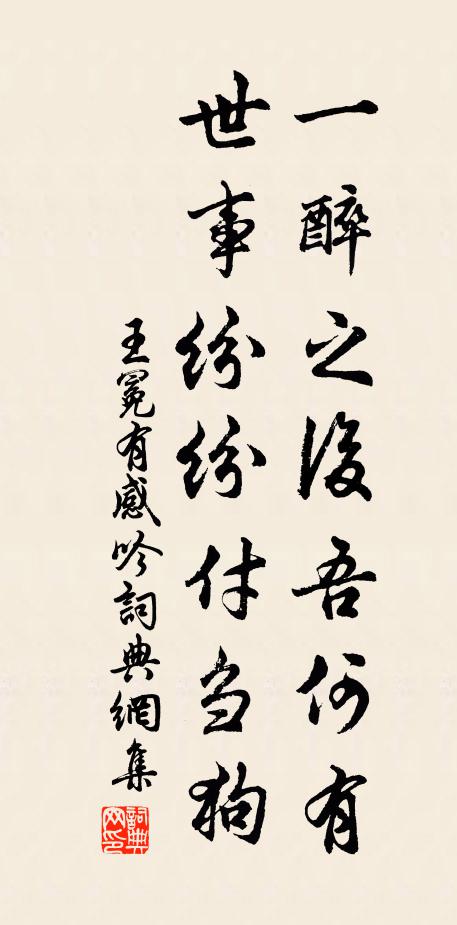 一醉之後吾何有
世事紛紛付刍狗
王冕有感吟詞典網集
詞典網印